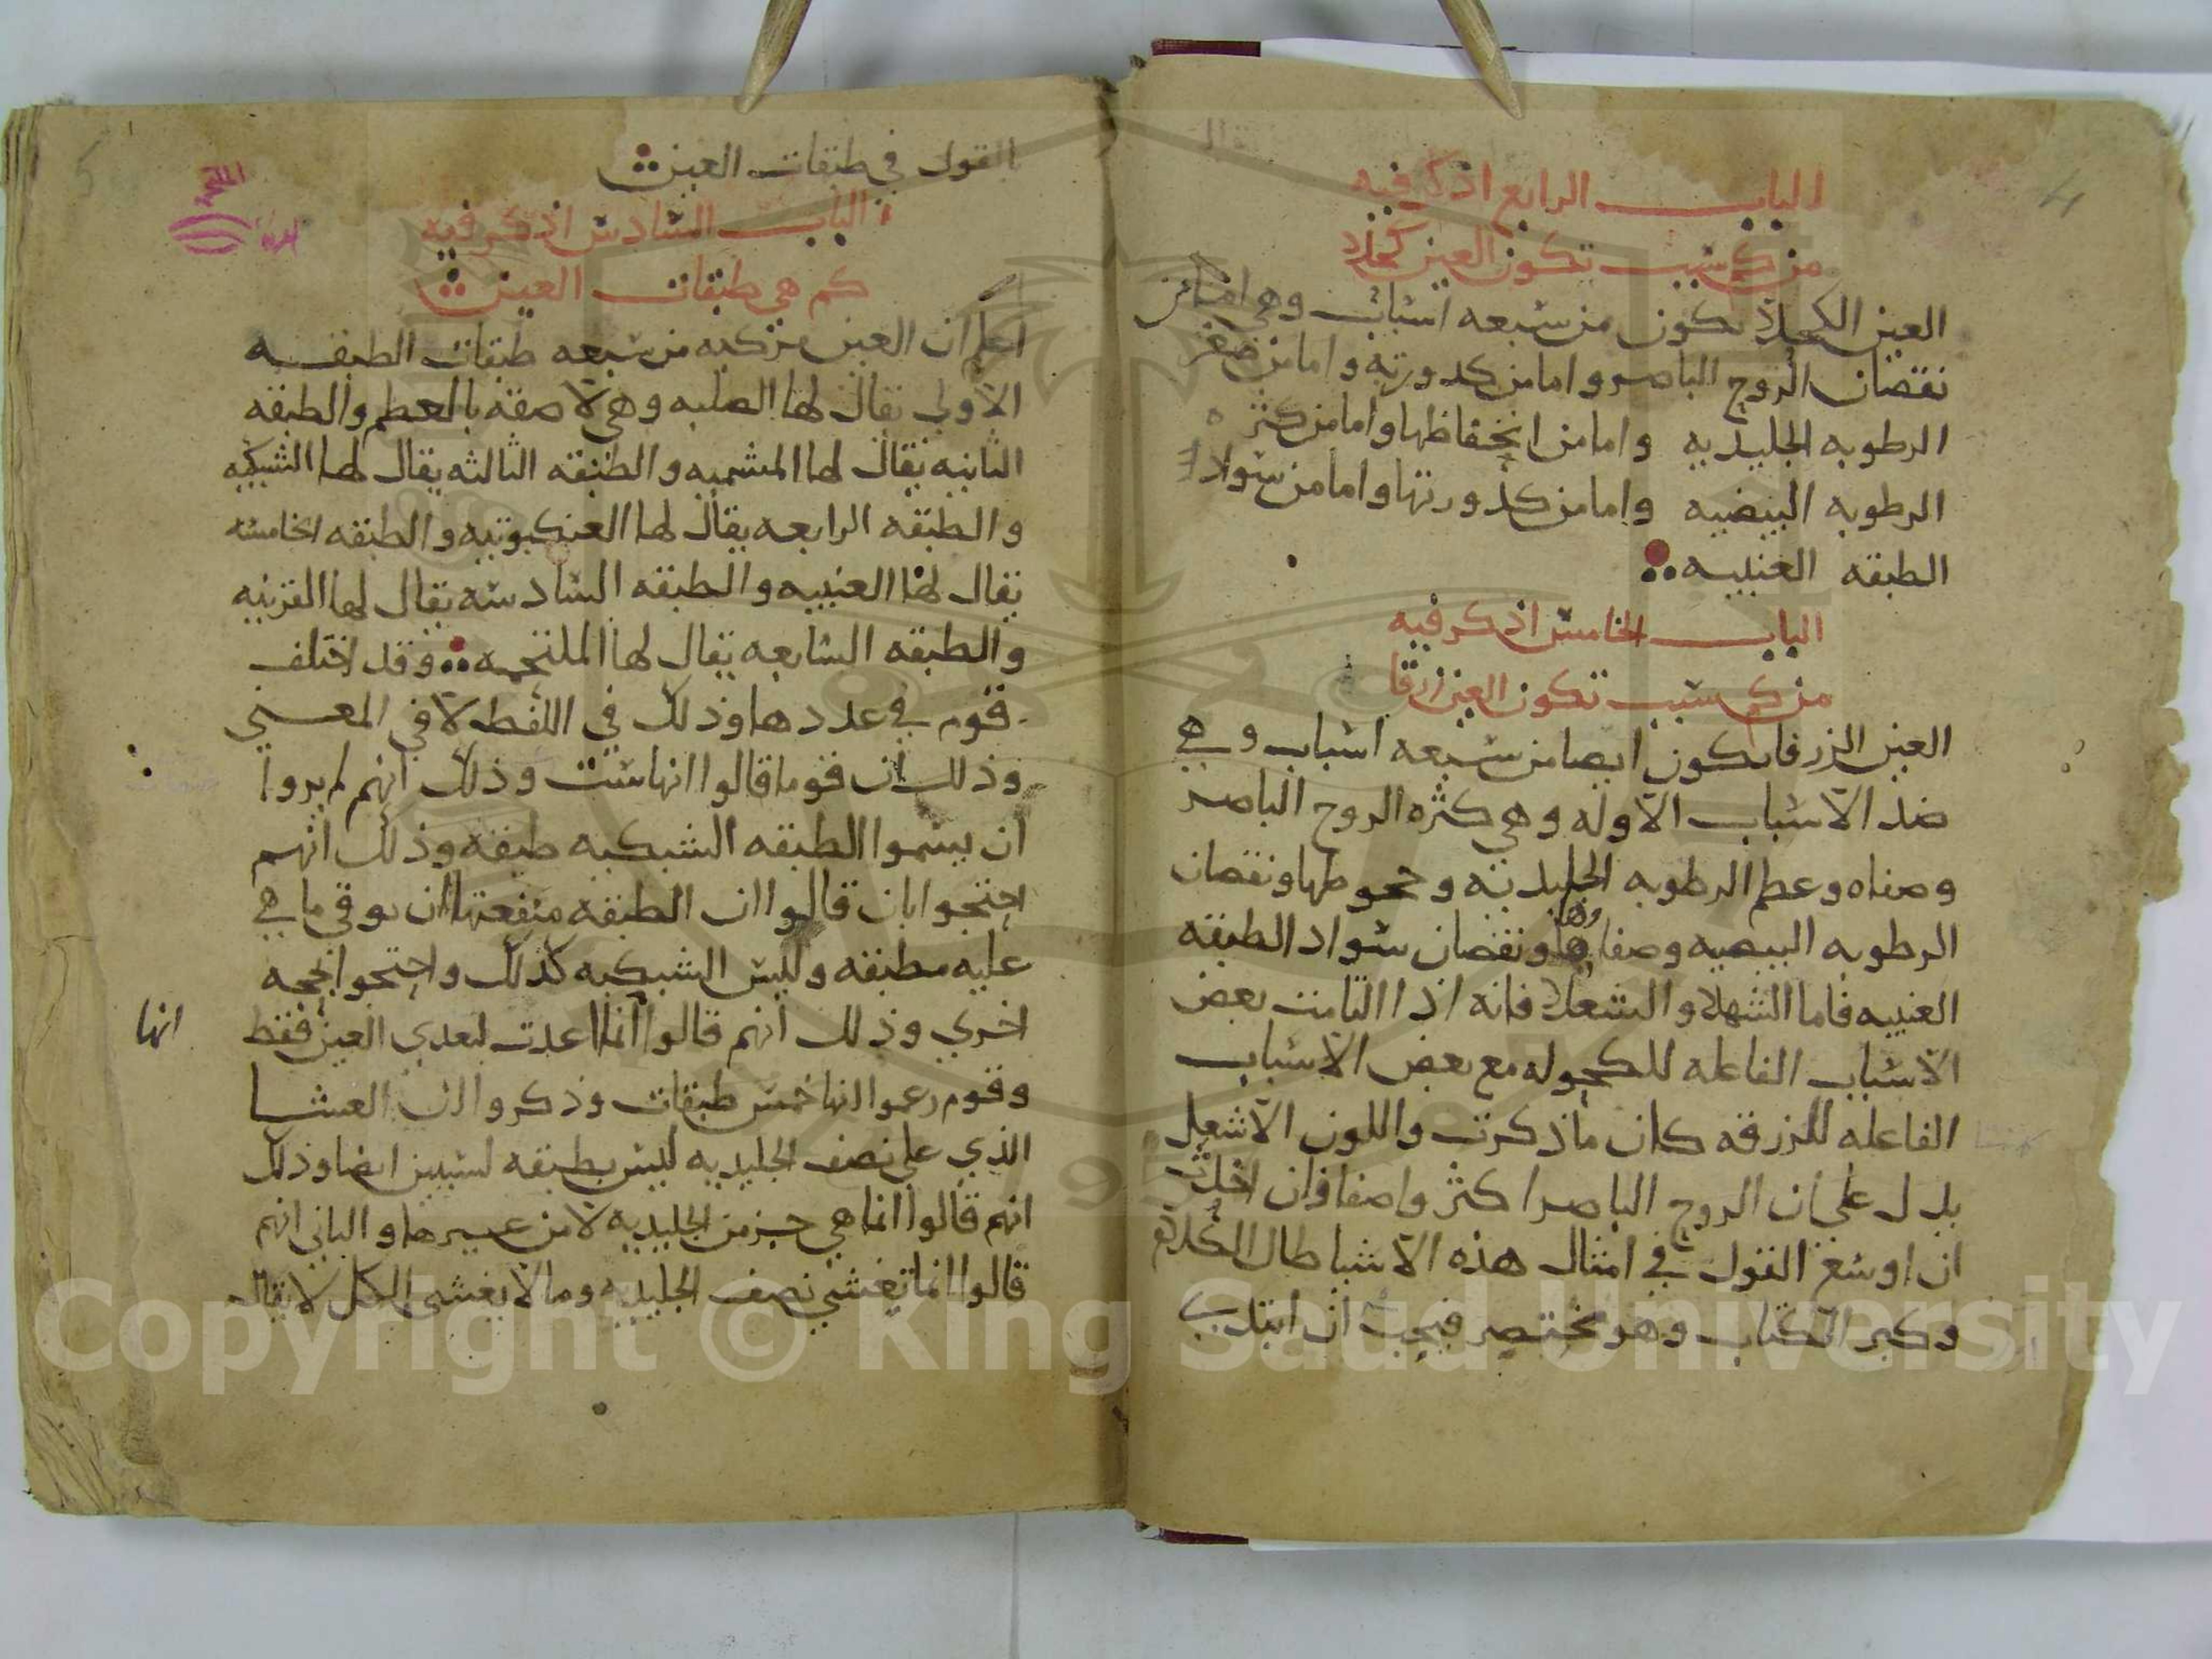 4
الباب الرابع اذكر فيه
من كم سبب تكون العين كحلا
العين الكحلا تكون من سبعه اسباب وهي اما من
نقصان الروح الباصر واما من كدورته واما من صغر
الرطوبه الجليديه واما من انخفاظها واما من كثره
الرطوبه البيضيه واما من كدورتها واما من سواد
الطبقه العنبيه
الباب الخامس اذكر فيه
من كم سبب تكون العين زرقا
العين الزرقا تكون ايضا من سبعه اسباب وهي
ضد الاسباب الاوله وهي كثره الروح الباصر
وصفاه وعظم الرطوبه الجليديه وجحوظها ونقصان
الرطوبه البيضيه وصفاوها ونقصان سواد الطبقه
العنبيه فاما الشهلا والشعلا فانه اذا التامت بعض
الاسباب الفاعله للكحوله مع بعض الاسباب
الفاعله للزرقه كان ماذكرت واللون الاشعل
يدل على ان الروح الباصر اكثر واصفا فان اخذت
ان اوسع القول في امثال هذه الاشيا طال الكلام
وكبر الكتاب وهو مختصر فيجب ان ابتدي
5
القول في طبقات العين
الباب السادس اذكر فيه
كم هي طبقات العين
اعلم ان العين مركبه من سبعه طبقات الطبقه
الاولي يقال لها الصلبه وهي لاصقه بالعظم والطبقه
الثانيه يقال لها المشميه والطبقه الثالثه يقال لها الشبكيه
والطبقه الرابعه يقال لها العنكبوتيه والطبقه الخامسه
يقال لها العنبيه والطبقه السادسه يقال لها القرنيه
والطبقه السابعه يقال لها الملتحمه وقد اختلف
قوم في عددها وذلك في اللفظ لا في المعني
وذلك ان قوما قالوا انها ست وذلك انهم لم يروا
ان يسموا الطبقه الشبكيه طبقه وذلك انهم
احتجوا بان قالوا ان الطبقه منفعتها ان توقي ما هي
عليه مطبقه وليس الشبكيه كذلك واحتجوا بحجه
اخري وذلك انهم قالوا انما اعدت لتغدي العين فقط
انها
وقوم زعموا انها خمس طبقات وذكروا ان العشا
الذي علي نصف الجليديه ليس بطبقه لسببين ايضا وذلك
انهم قالوا انما هي جز من الجليديه لا من غيرها والثاني انهم
قالوا انما تغشي نصف الجليديه وما لا يغشي الكل لا يقال
Copyright © King Saud University